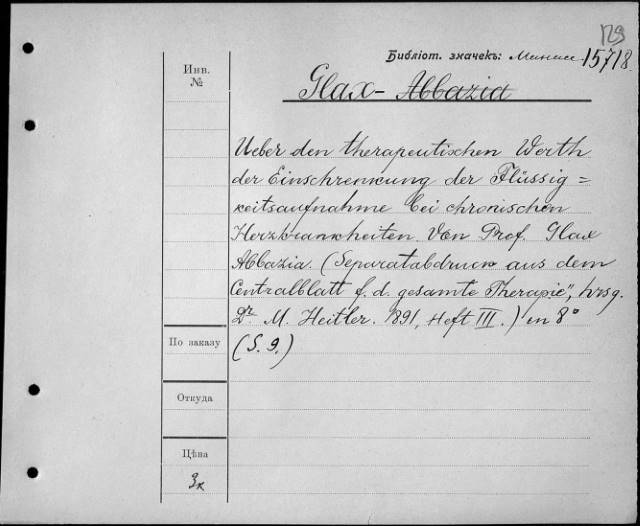 129
Библіот. значекъ: 15718
Инв.
№
Glax - Abbazia
Ueber den therapeutischen Werth
der Einschrenkung der Flüssig=
keitsaufnahme bei chronischen
Herzkrankheiten. Von Prof. Glax
Abbazia. (Separatabdruck aus dem
Centralblatt f. d. gesamte Therapie", hrsg.
Dr. M. Heitler. 1891, Heft III.) in 8°
(S. 9.)
По заказу
Откуда
Цѣна
3к